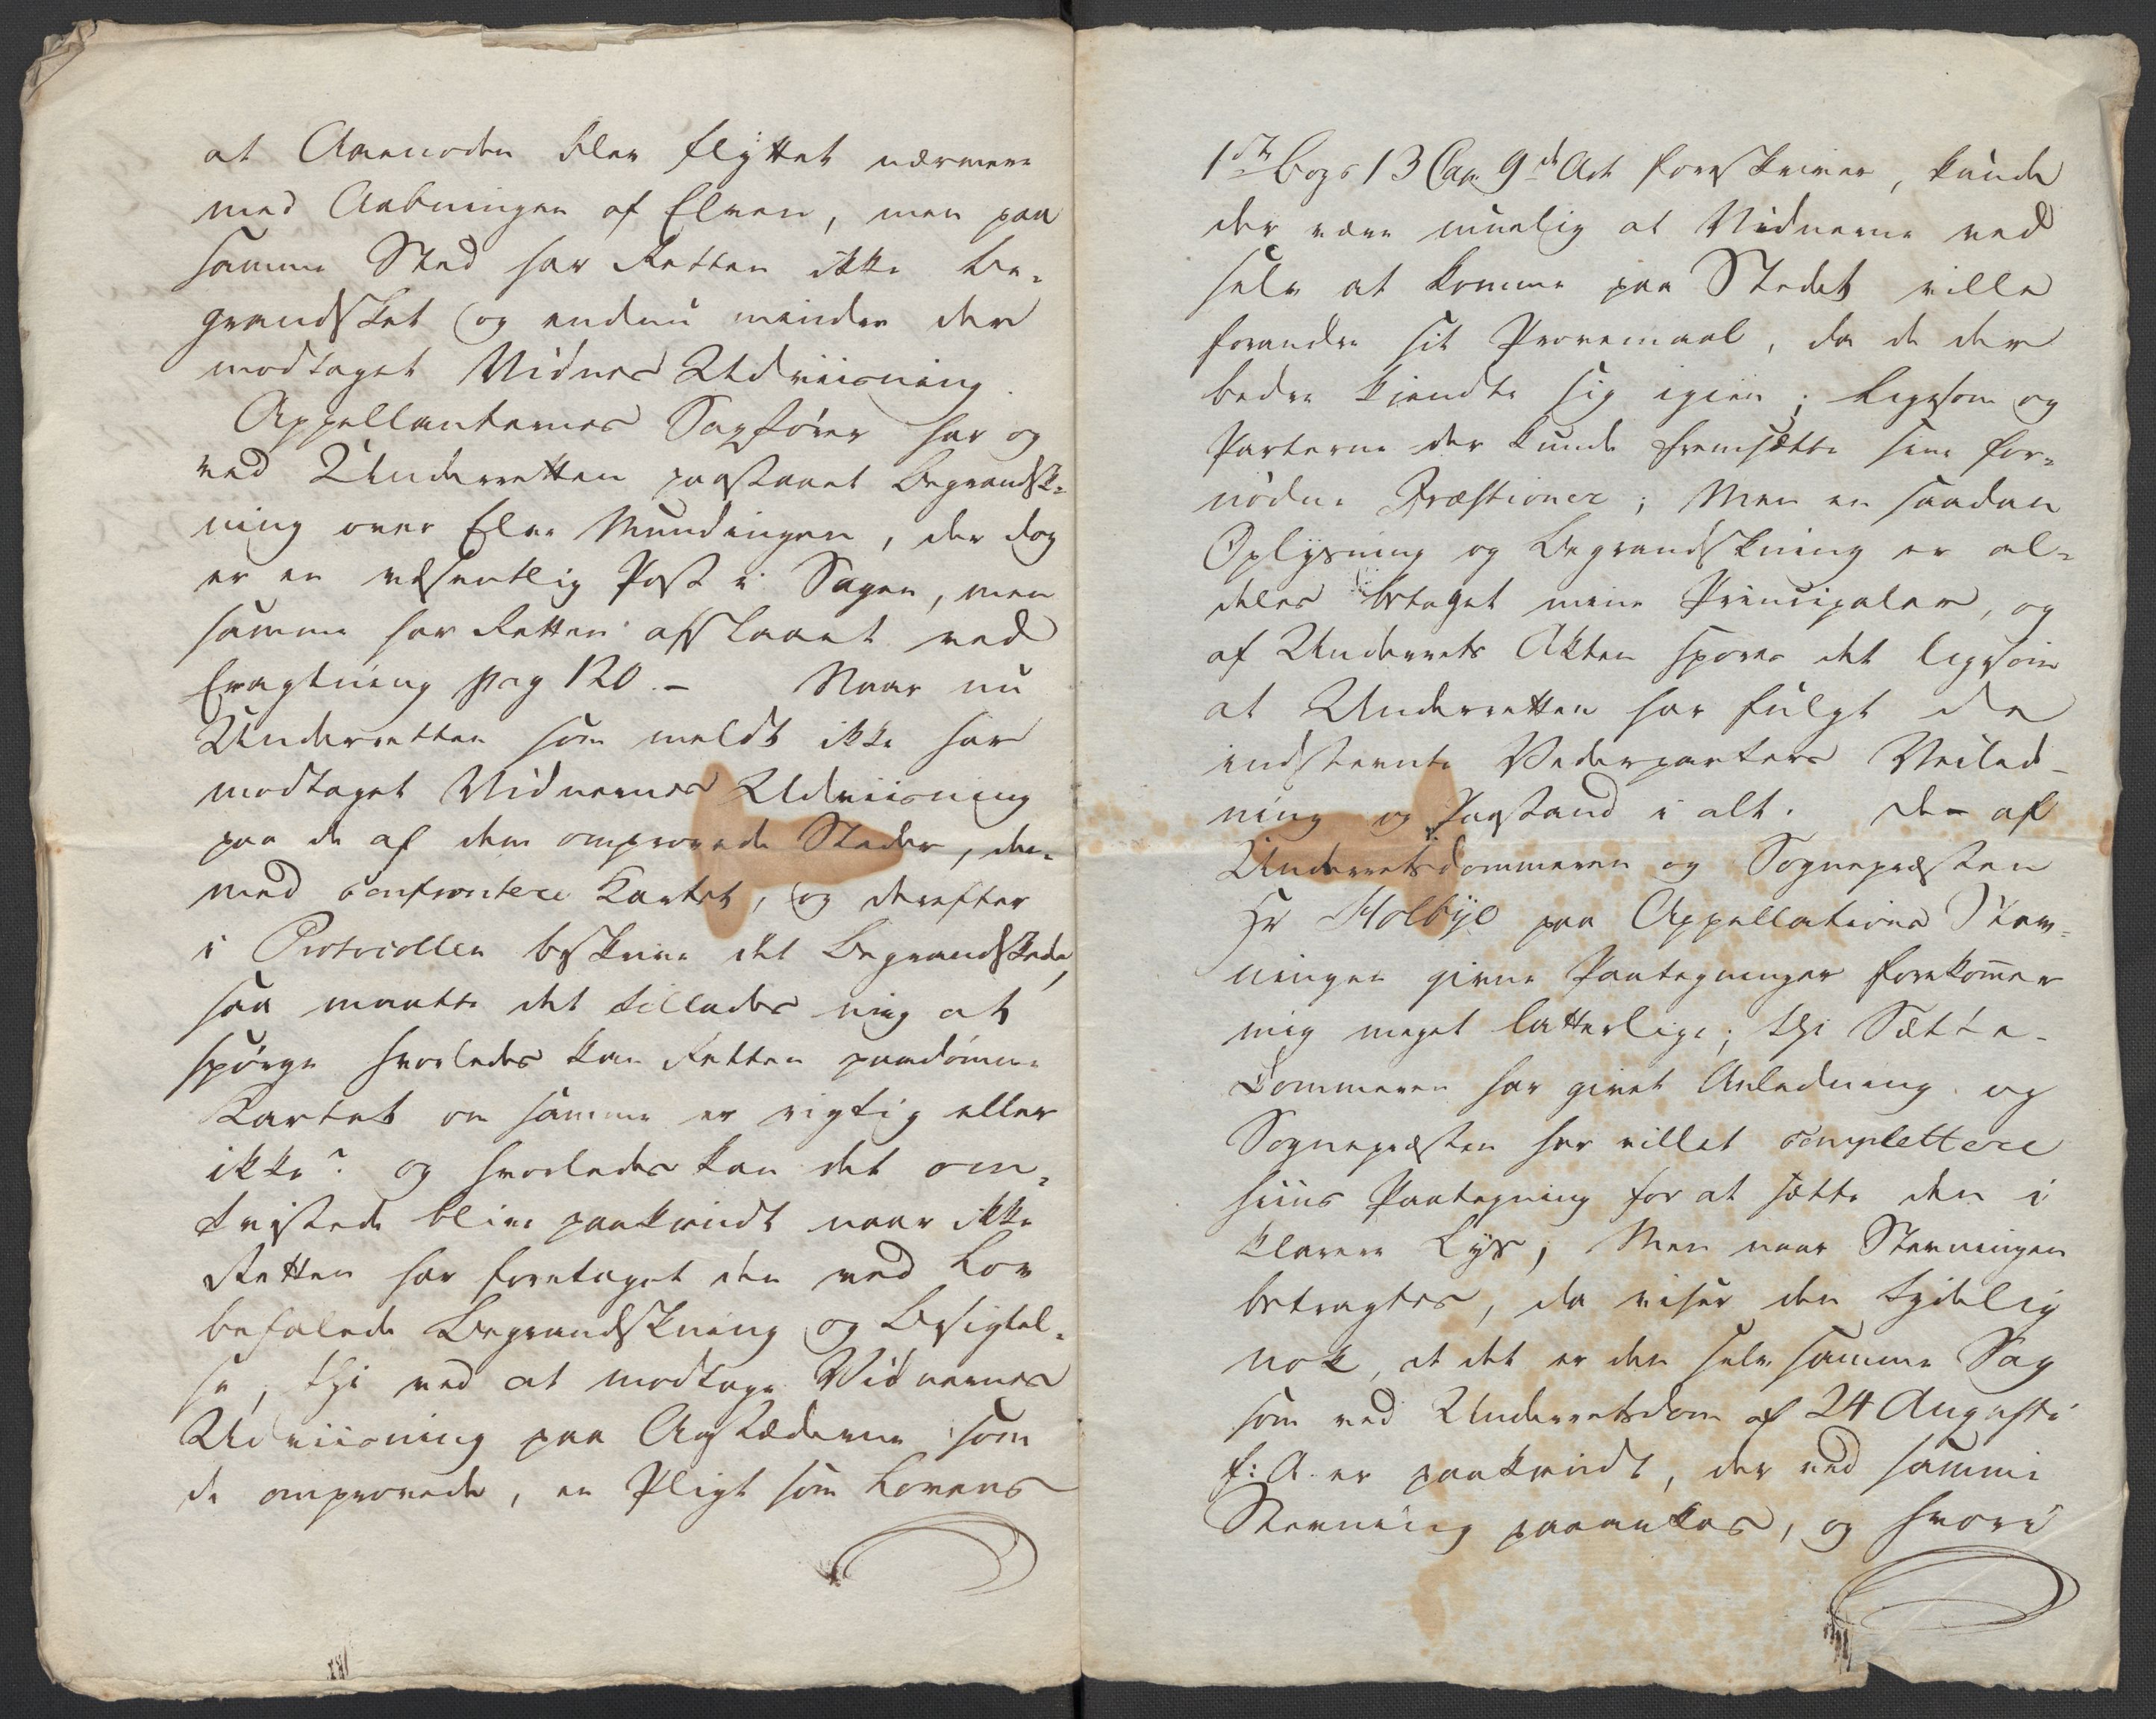 at Aanenoden blev flyttet nærmere
med Aabningen af Elven, men paa
samme Sted har Retten ikke be-
grandsket og endnu mindre der
modtaget Vidnes Udviisning.
Appellanternes Sagfører har og
ved Underretten paastaaet Begrandsk-
ning over Elve Mundingen, der dog
er en væsentlig Post i Sagen, men
samme har Retten afslaaet ved
Eragtning pag 120. – Naar nu
Underretten som meldt ikke har
modtaget Vidnernes Udviisning
paa de af dem omprovede Steder, der-
med confrontere Kartet, og derefter
i Protocollen beskrive det Begrandskede,
saa maatte det tillades mig at
spørge hvorledes kan Retten paadømme
Kartet om samme er rigtig eller
ikke? og hvorledes kan det om-
tvistede blive paakiendt naar ikke
Retten har foretaget den ved Lov
befalede Begrandskning og Besigtel-
se, thi ved at modtage Vidnernes
Udviisning paa Aastæderne som
de omprovede, en Pligt som Lovens
1ste Bogs 13 Cap. 9de Art foreskriver, kunde
der være muelig at Vidnerne ved
selv at komme paa Stedet ville
forandre sit Provemaal, da de der
bedre kiendte sig igien; ligesom og
Parterne der kunde fremsætte sine for-
nødne Qvæstioner; Men en saadan
Oplysning og Begrandskning er al-
deles betaget mine Principaler, og
af Underrets Akten spores det ligesom
at Underretten har fulgt de
indstevnte Vederparters Veiled-
ning og Paastand i alt. De af
Underretsdommeren og Sognepræsten
Hr Holbye paa Appellations Stev-
ningen givne Paategninger forekom̅er
mig meget latterlige; thi Sætte-
Dommeren har givet Anledning og
Sognepræsten har villet complettere
hiins Paategning for at sætte den i
klarere Lys; Men naar Stevningen
betragtes, da viser den tydelig
nok, at det er den selv samme Sag
som ved Underretsdom af 24 Augusti
f: A. er paakiendt, der ved samme
Stevning paaankes, og hvori